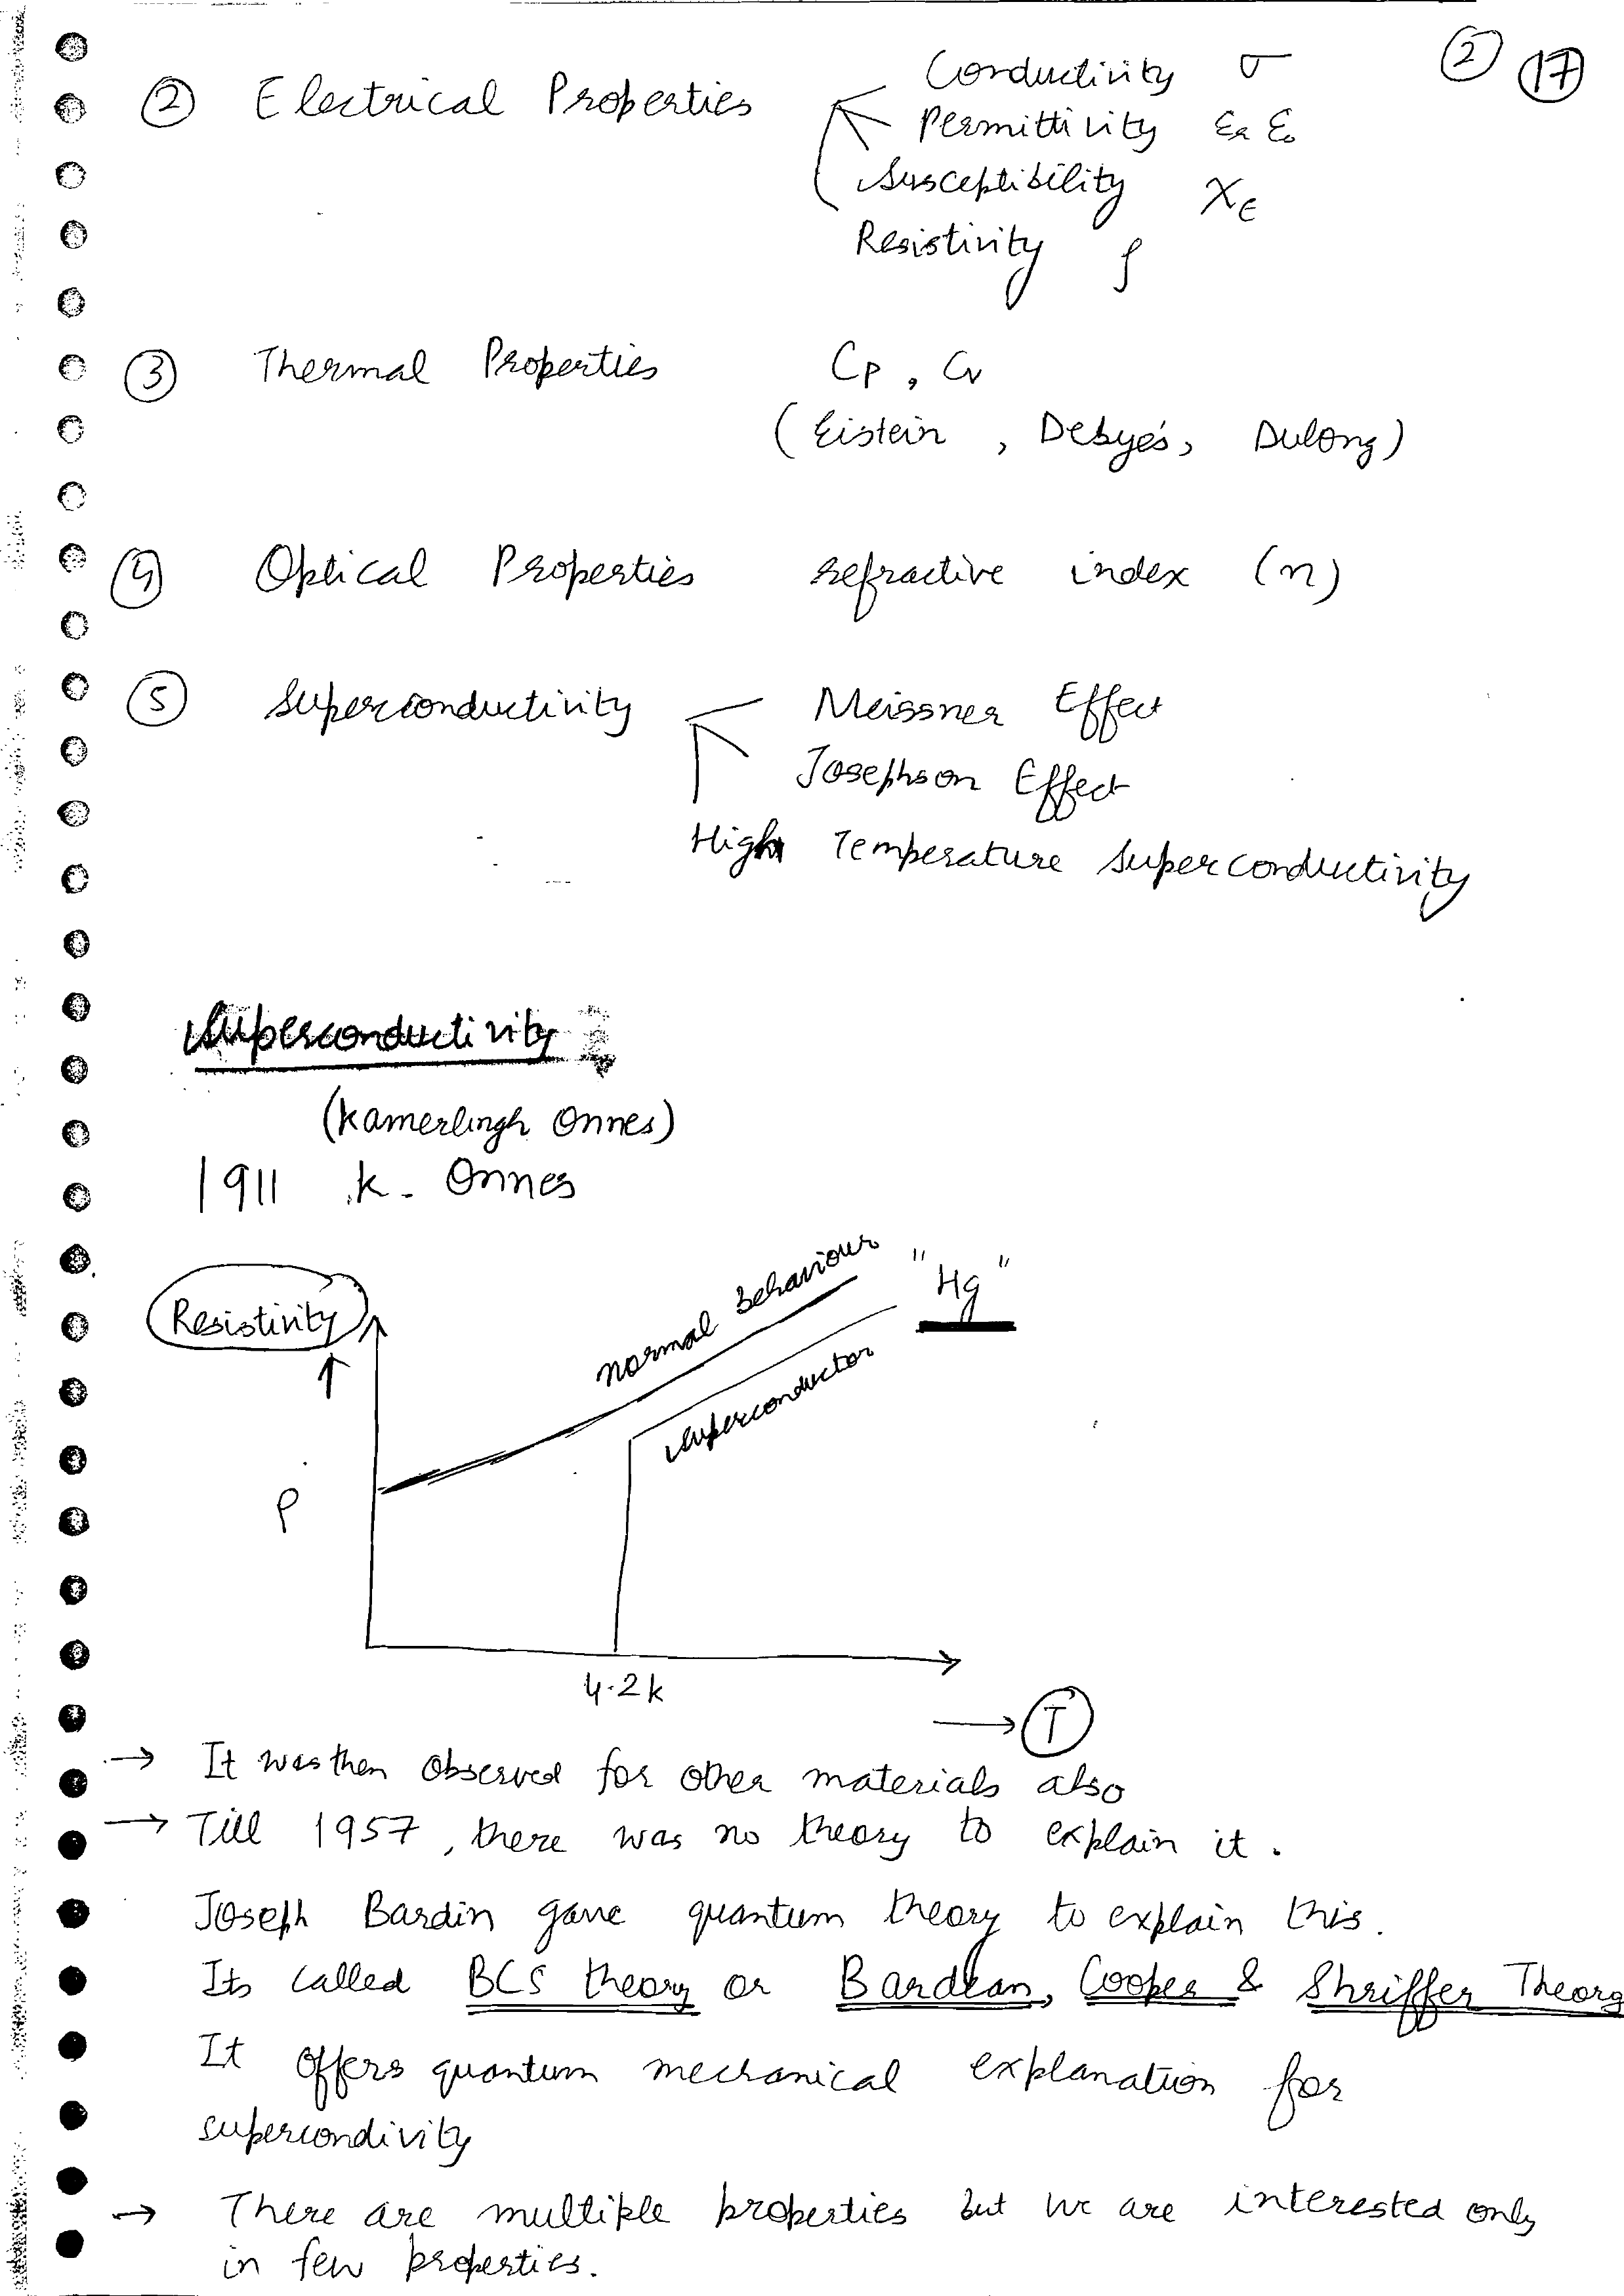 ② Electrical Properties
Conductivity σ
Permittivity ε_r ε_0
Susceptibility χ_e
Resistivity ρ
② ⑰
③ Thermal Properties Cp, Cv
(Eistein, Debye's, Dulong)
④ Optical Properties refractive index (n)
⑤ Superconductivity Meissner Effect
Josephson Effect
High Temperature Superconductivity
Superconductivity
(Kamerlingh Onnes)
1911 K. Onnes
Resistivity
normal behaviour
"Hg"
superconductor
ρ
4.2k
→ T
→ It was then observed for other materials also
→ Till 1957, there was no theory to explain it.
Joseph Bardin gave quantum theory to explain this.
Its called BCS theory or Bardean, Cooper & Shriffer Theory
It offers quantum mechanical explanation for
supercondivity
→ There are multiple properties but we are interested only
in few properties.